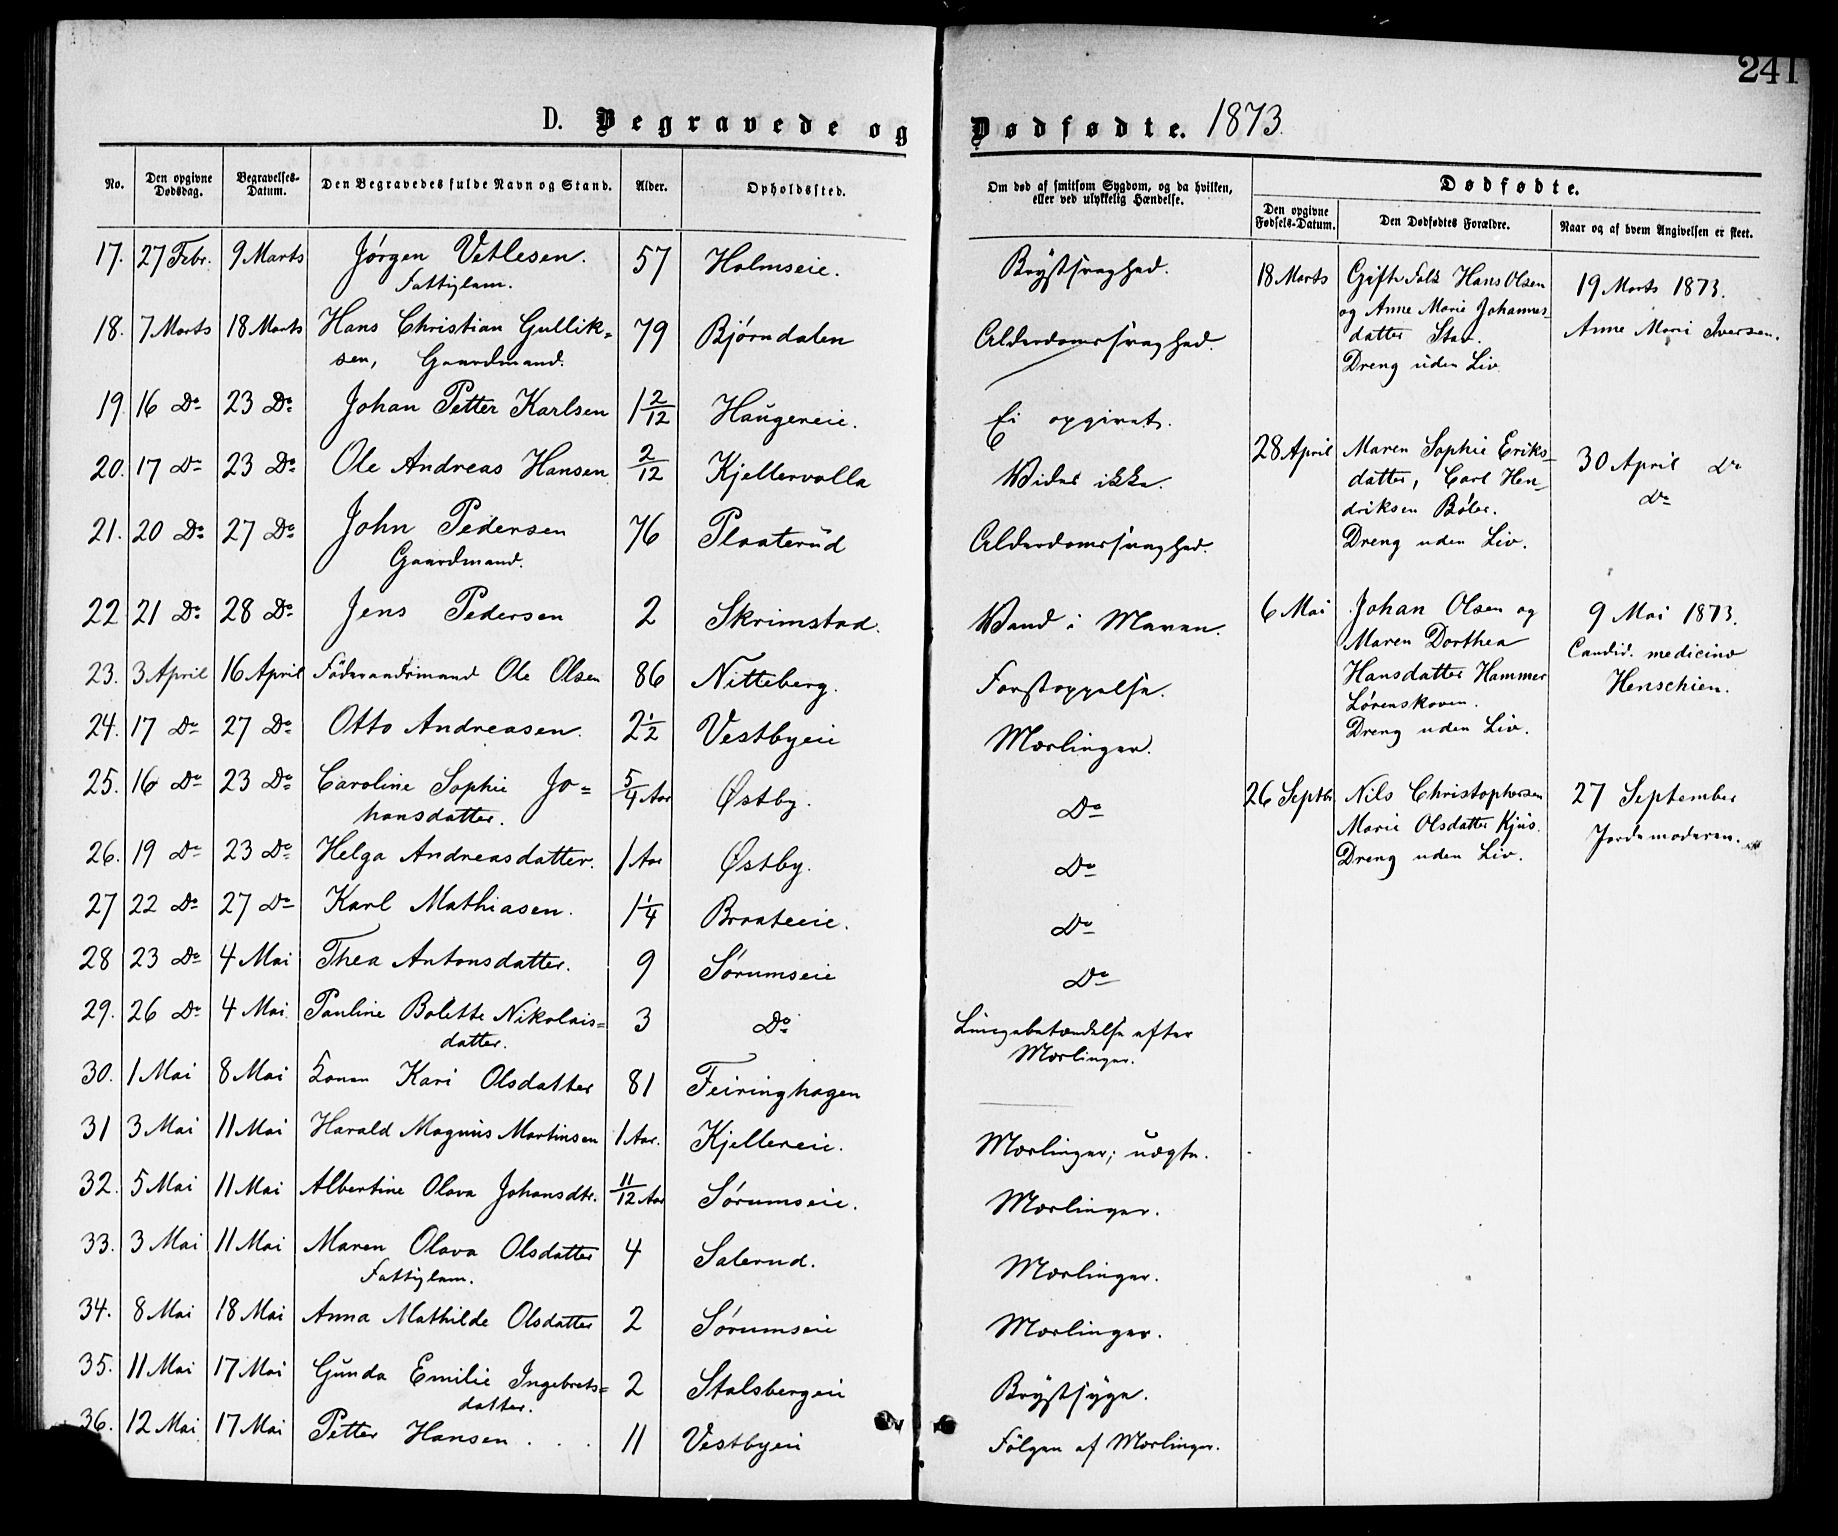 241
D. Begravede og Dødfødte. 1873.
No. | Den opgivne Dødsdag. | Begravelses-Datum. | Den Begravedes fulde Navn og Stand. | Alder. | Opholdssted. | Om død af smitsom Sygdom, og da hvilken, eller ved ulykkelig Hændelse.
17. | 27 Febr. | 9 Marts | Jørgen Vetlesen. Fattiglem. | 57 | Holmseie. | Brystsvaghed.
18. | 7 Marts | 18 Marts | Hans Christian Gullik=sen, Gaardmand. | 79 | Bjørndalen | Alderdomssvaghed.
19. | 16 Do | 23 Do | Johan Petter Karlsen | 1 2/12 | Haugereie. | Ei opgivet.
20. | 17 Do | 23 Do | Ole Andreas Hansen | 2/12 | Kjellervolla | Vides ikke.
21. | 20 Do | 27 Do | John Pedersen Gaardmand. | 76 | Plaaterud | Alderdomssvaghed.
22 | 21 Do | 28 Do | Jens Pedersen | 2 | Skrimstad. | Vand i Maven.
23. | 3 April | 16 April | Føderaadsmand Ole Olsen | 86 | Nitteberg. | Forstoppelse.
24. | 17 Do | 27 Do | Otto Andreasen. | 2 1/2 | Vestbyeie | Mæslinger.
25. | 16 Do | 23 Do | Caroline Sophie Jo=hansdatter. | 5/4 Aar | Østby. | Do
26. | 19 Do | 23 Do | Helga Andreasdatter. | 1 Aar | Østby. | Do
27 | 22 Do | 27 Do | Karl Mathiasen. | 1 1/4 | Braateeie. | Do
28 | 23 Do | 4 Mai | Thea Antonsdatter. | 9 | Sørumseie | Do
29. | 26 Do | 4 Mai | Pauline Bolette Nikolais=datter. | 3 | Do | Lungebetændelse efter Mæslinger.
30. | 1 Mai | 8 Mai | Konen Kari Olsdatter | 81 | Feiringhagen
31 | 3 Mai | 11 Mai | Harald Magnus Martinsen | 1 Aar. | Kjellereie. | Mæslinger; uægte.
32. | 5 Mai | 11 Mai | Albertine Olava Johansdtr. | 11/12 Aar | Sørumseie. | Mæslinger.
33. | 3 Mai | 11 Mai | Maren Olava Olsdatter Fattiglem. | 4 | Salerud. | Mæslinger.
34. | 8 Mai | 18 Mai | Anna Mathilde Olsdatter | 2 | Sørumseie | Mæslinger.
35. | 11 Mai | 17 Mai | Gunda Emilie Ingebrets=datter. | 2 | Stalsbergeie | Brystsyge.
36. | 12 Mai | 17 Mai | Petter Hansen . . . | 11 | Vestbyeie | Følgen af Mæslinger.
Dødfødte.
Den opgivne Fødsels-Datum. | Den Dødfødtes Forældre. | Naar og af hvem Angivelsen er skeet.
18 Marts | Gifte Folk Hans Olsen
og Anne Marie Johannes-
datter Stav.
Dreng uden Liv. | 19 Marts 1873.
Anne Marie Iversen.
28 April | Maren Sophie Eriks-
datter, Carl Hen-
driksen Bøler.
Dreng uden Liv. | 30 April Do
Do
6 Mai | Johan Olsen og
Maren Dorthea
Hansdatter Hammer
Lørenskoven.
Dreng uden Liv. | 9 Mai 1873.
Candid. medicinæ
Henschien.
26 Septbr | Nils Christophersen
Marie Olsdatter Kjus.
Dreng uden Liv. | 27 September
Jordemoderen.